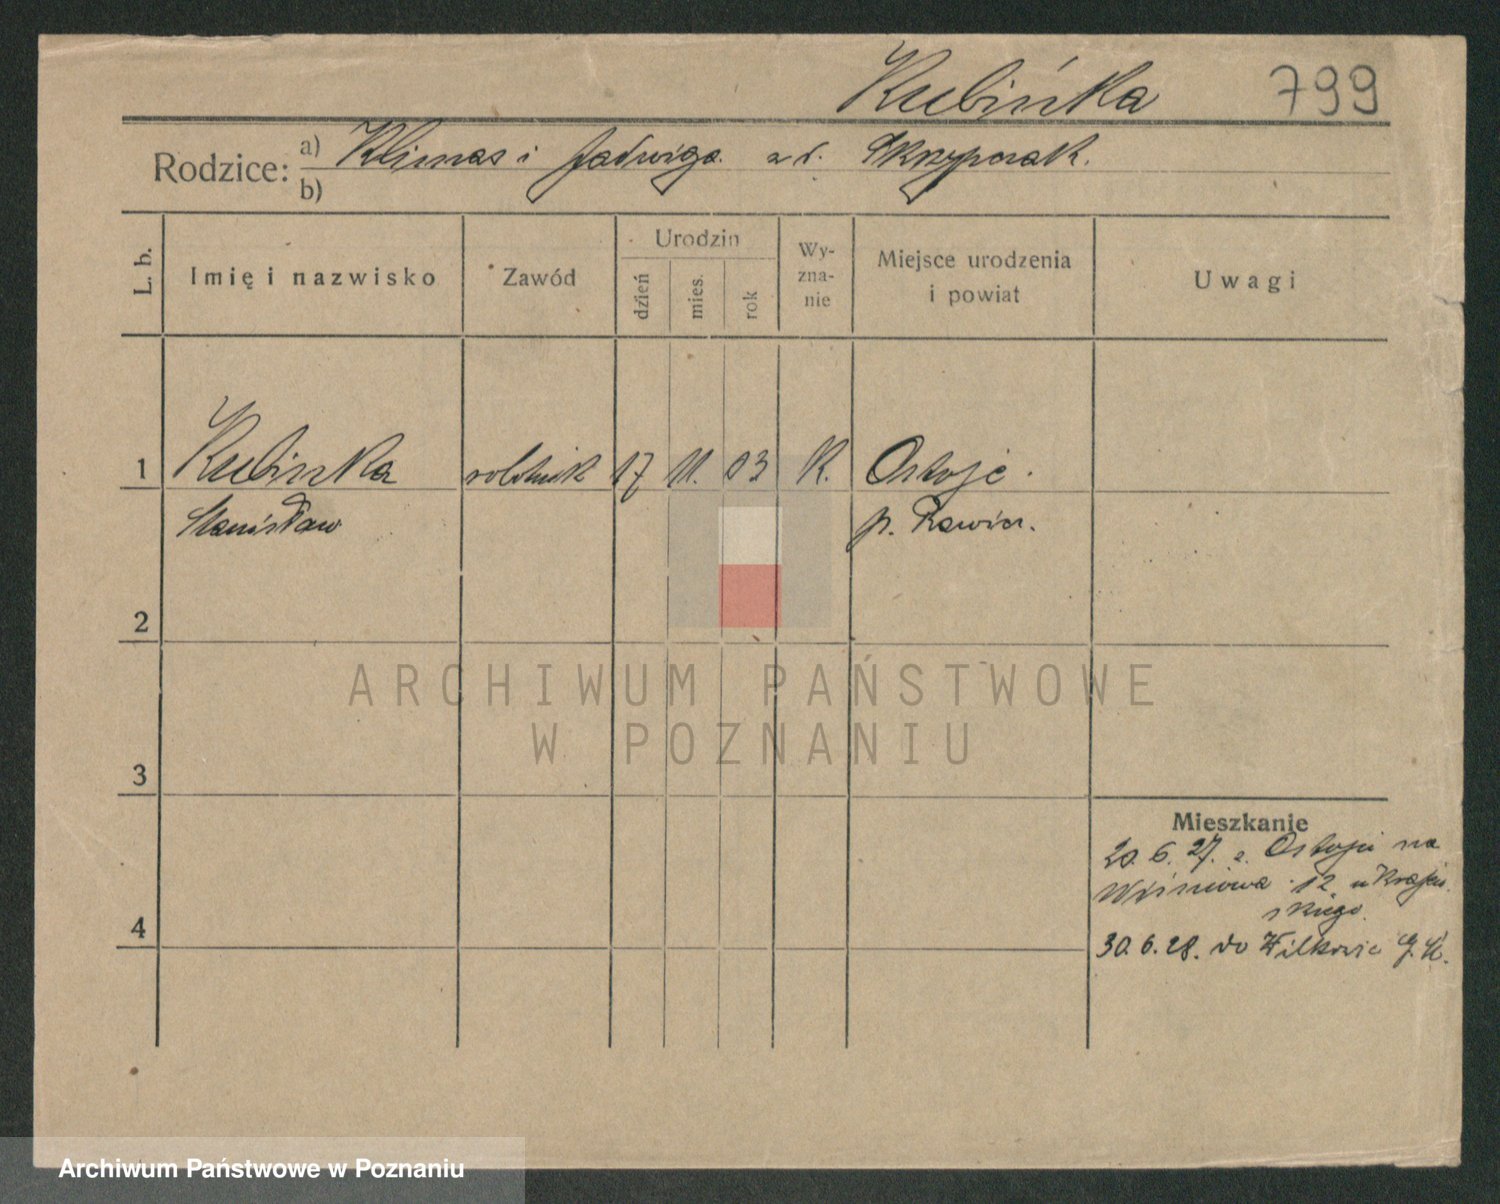 Kubińka 799
Rodzice: a) Klimas i Jadwiga z d. Skrzypczak.
b)
L. b. Imię i nazwisko Zawód Urodzin dzień mies. rok Wyznanie Miejsce urodzenia i powiat Uwagi
1 Kubinka robotnik 17 11. 03 K. Ostoje.
Stanisław p. Rawicz.
2
ARCHIWUM PAŃSTWOWE
W POZNANIU
3
Mieszkanie
20. 6. 27. z. Ostoji na
Wiśniowa 12 u
skiego.
4
30. 6. 28. do Wilkowic
Archiwum Państwowe w Poznaniu